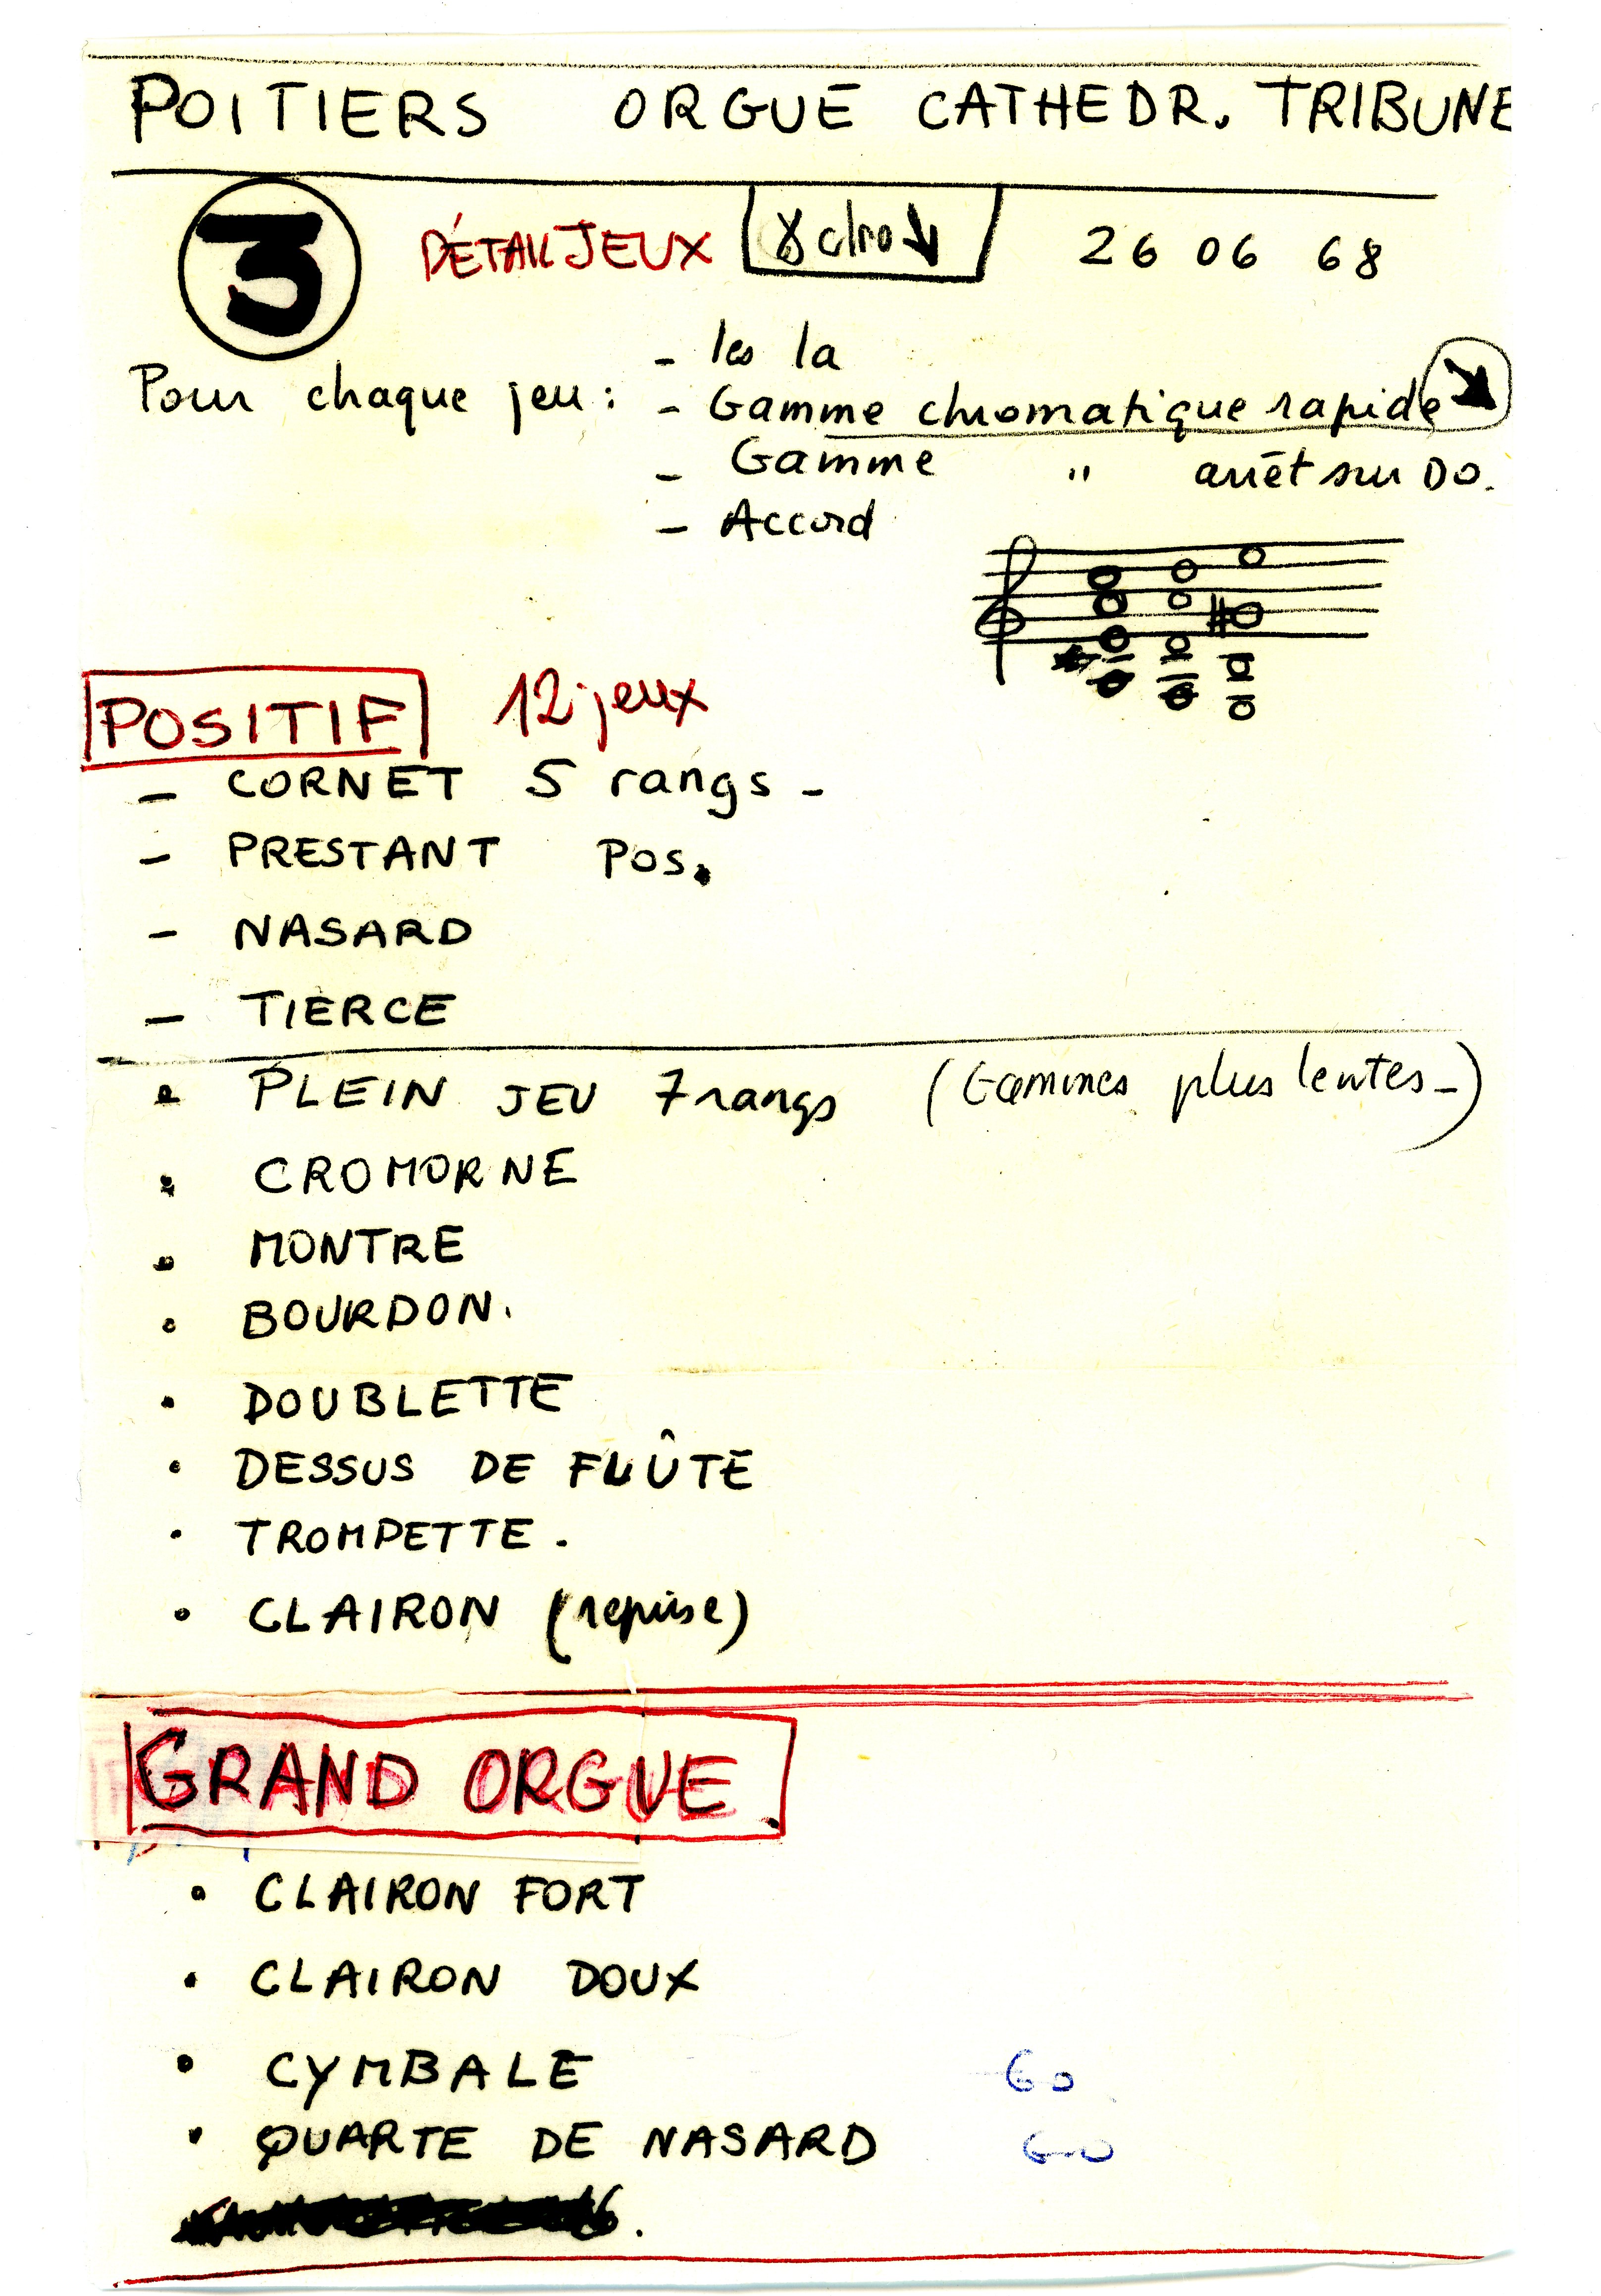 POITIERS ORGUE CATHEDR. TRIBUNE
3 DÉTAIL JEUX 26 06 68
Pour chaque jeu :
- les la
- Gamme chromatique rapide
- Gamme " arrêt sur DO.
- Accord
POSITIF 12 jeux
- CORNET 5 rangs -
- PRESTANT POS.
- NASARD
- TIERCE
• PLEIN JEU 7 rangs (Gammes plus lentes -)
• CROMORNE
• MONTRE
• BOURDON.
• DOUBLETTE
• DESSUS DE FLÛTE
• TROMPETTE.
• CLAIRON (reprise)
GRAND ORGUE.
• CLAIRON FORT
• CLAIRON DOUX
• CYMBALE GO
• QUARTE DE NASARD GO